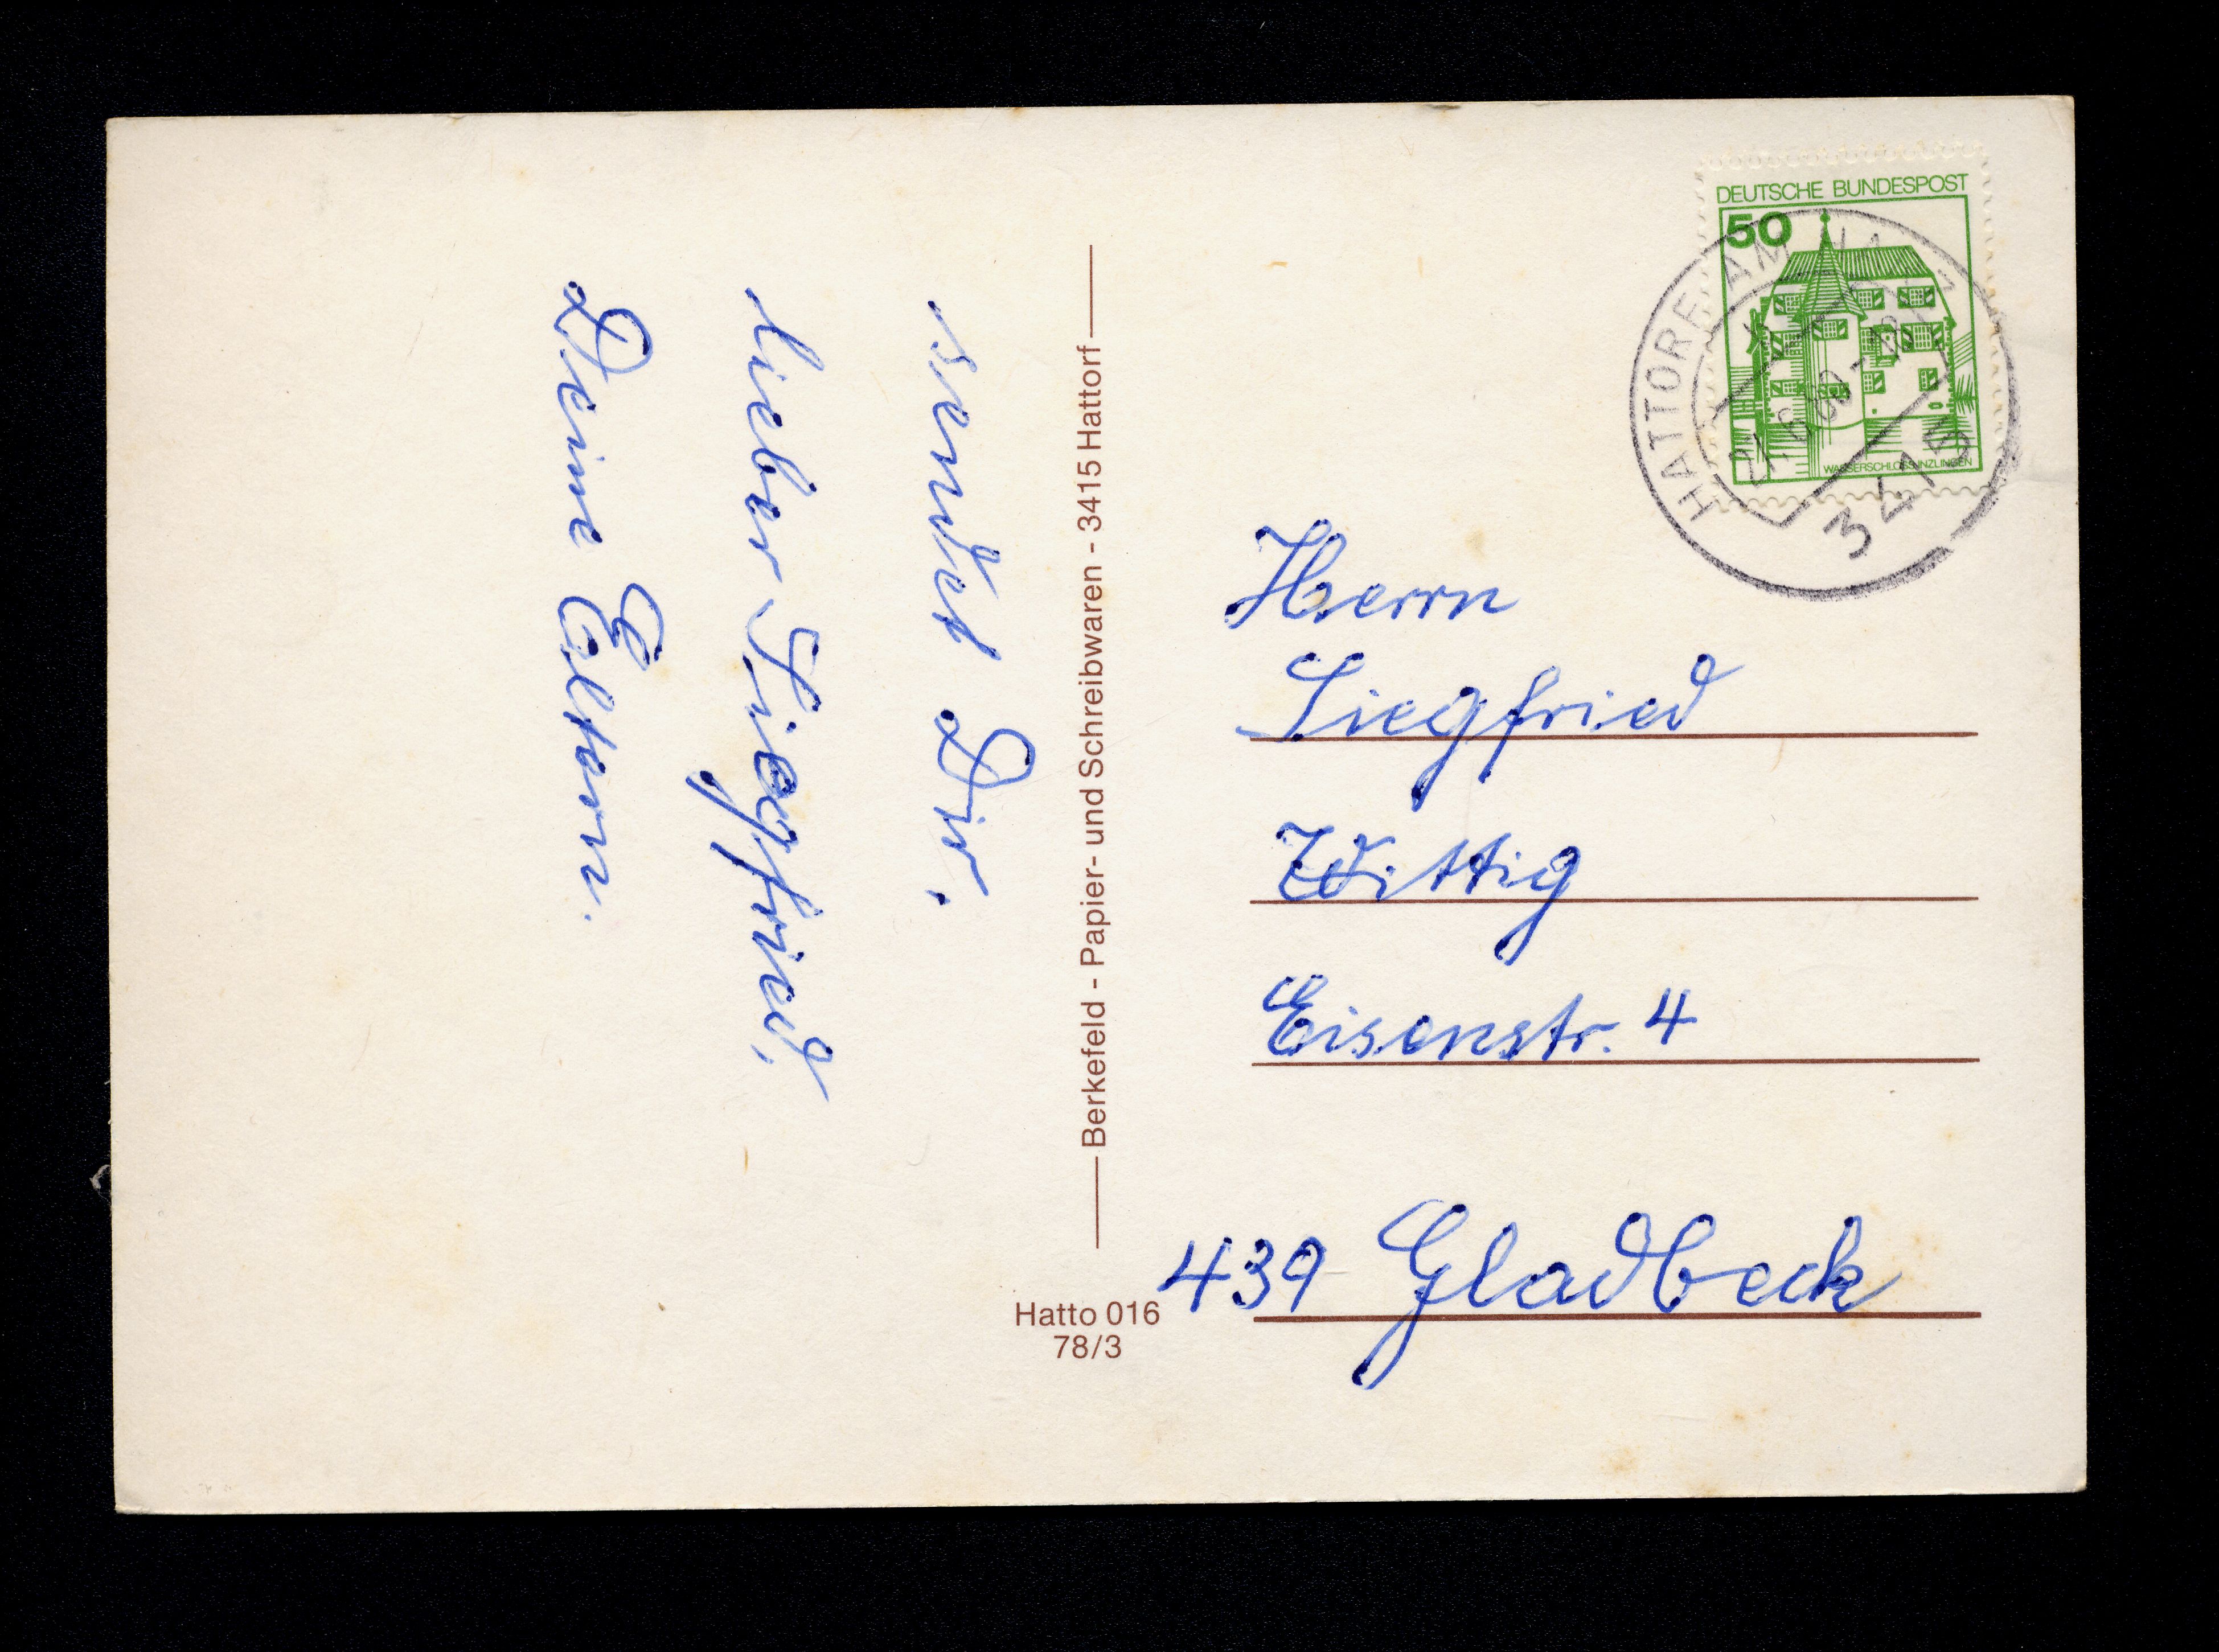 sendet Dir,
lieber Siegfried,
Deine Eltern.
Berkefeld - Papier- und Schreibwaren - 3415 Hattorf
Hatto 016
78/3
DEUTSCHE BUNDESPOST
50
WASSERSCHLOSS INZLINGEN
HATTORF AM HARZ
3415
Herrn
Siegfried
Wittig
Eisenstr. 4
439 Gladbeck